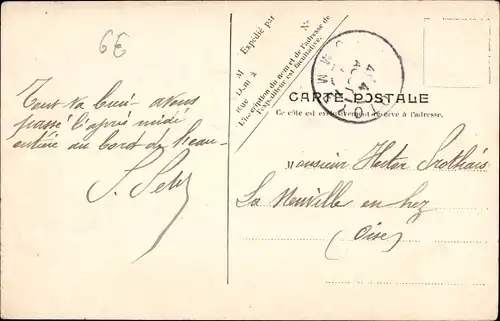 6E
Tout va bien - avons
passé l'après midi
entière au bord de l'eau -
Expédié par
M
Dem
à
Rue
No
L'inscription du nom et de l'adresse de
l'expéditeur est facultative.
CARTE POSTALE
Ce côté est exclusivement réservé à l'adresse.
Monsieur Hector
La Neuville en hez
(Oise)